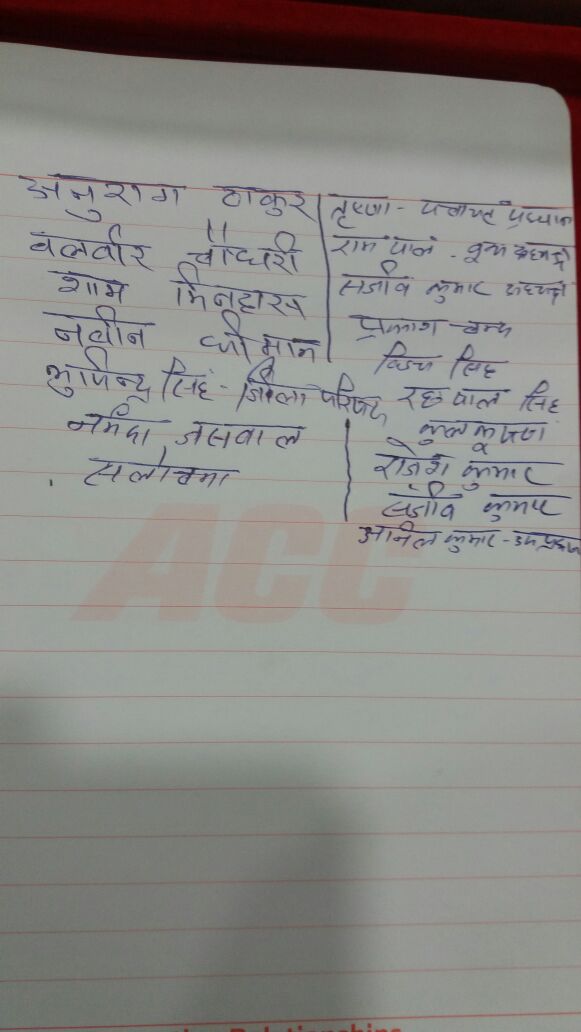 अनुराग ठाकुर
बलवीर चौधरी
शाम मिनहास
नवीन धीमान
भुपिन्द्र सिंह - जिला परिषद
नर्मदा जसवाल
सलोचना
तृष्णा - पंचायत प्रधान
राम पाल - बूथ अध्यक्ष
संजीव कुमार अध्यक्ष
प्रकाश चन्द
विजय सिंह
रछपाल सिंह
कुल कृष्ण
राजेश कुमार
संजीव कुमार
अनिल कुमार - उपप्रधान
ACC